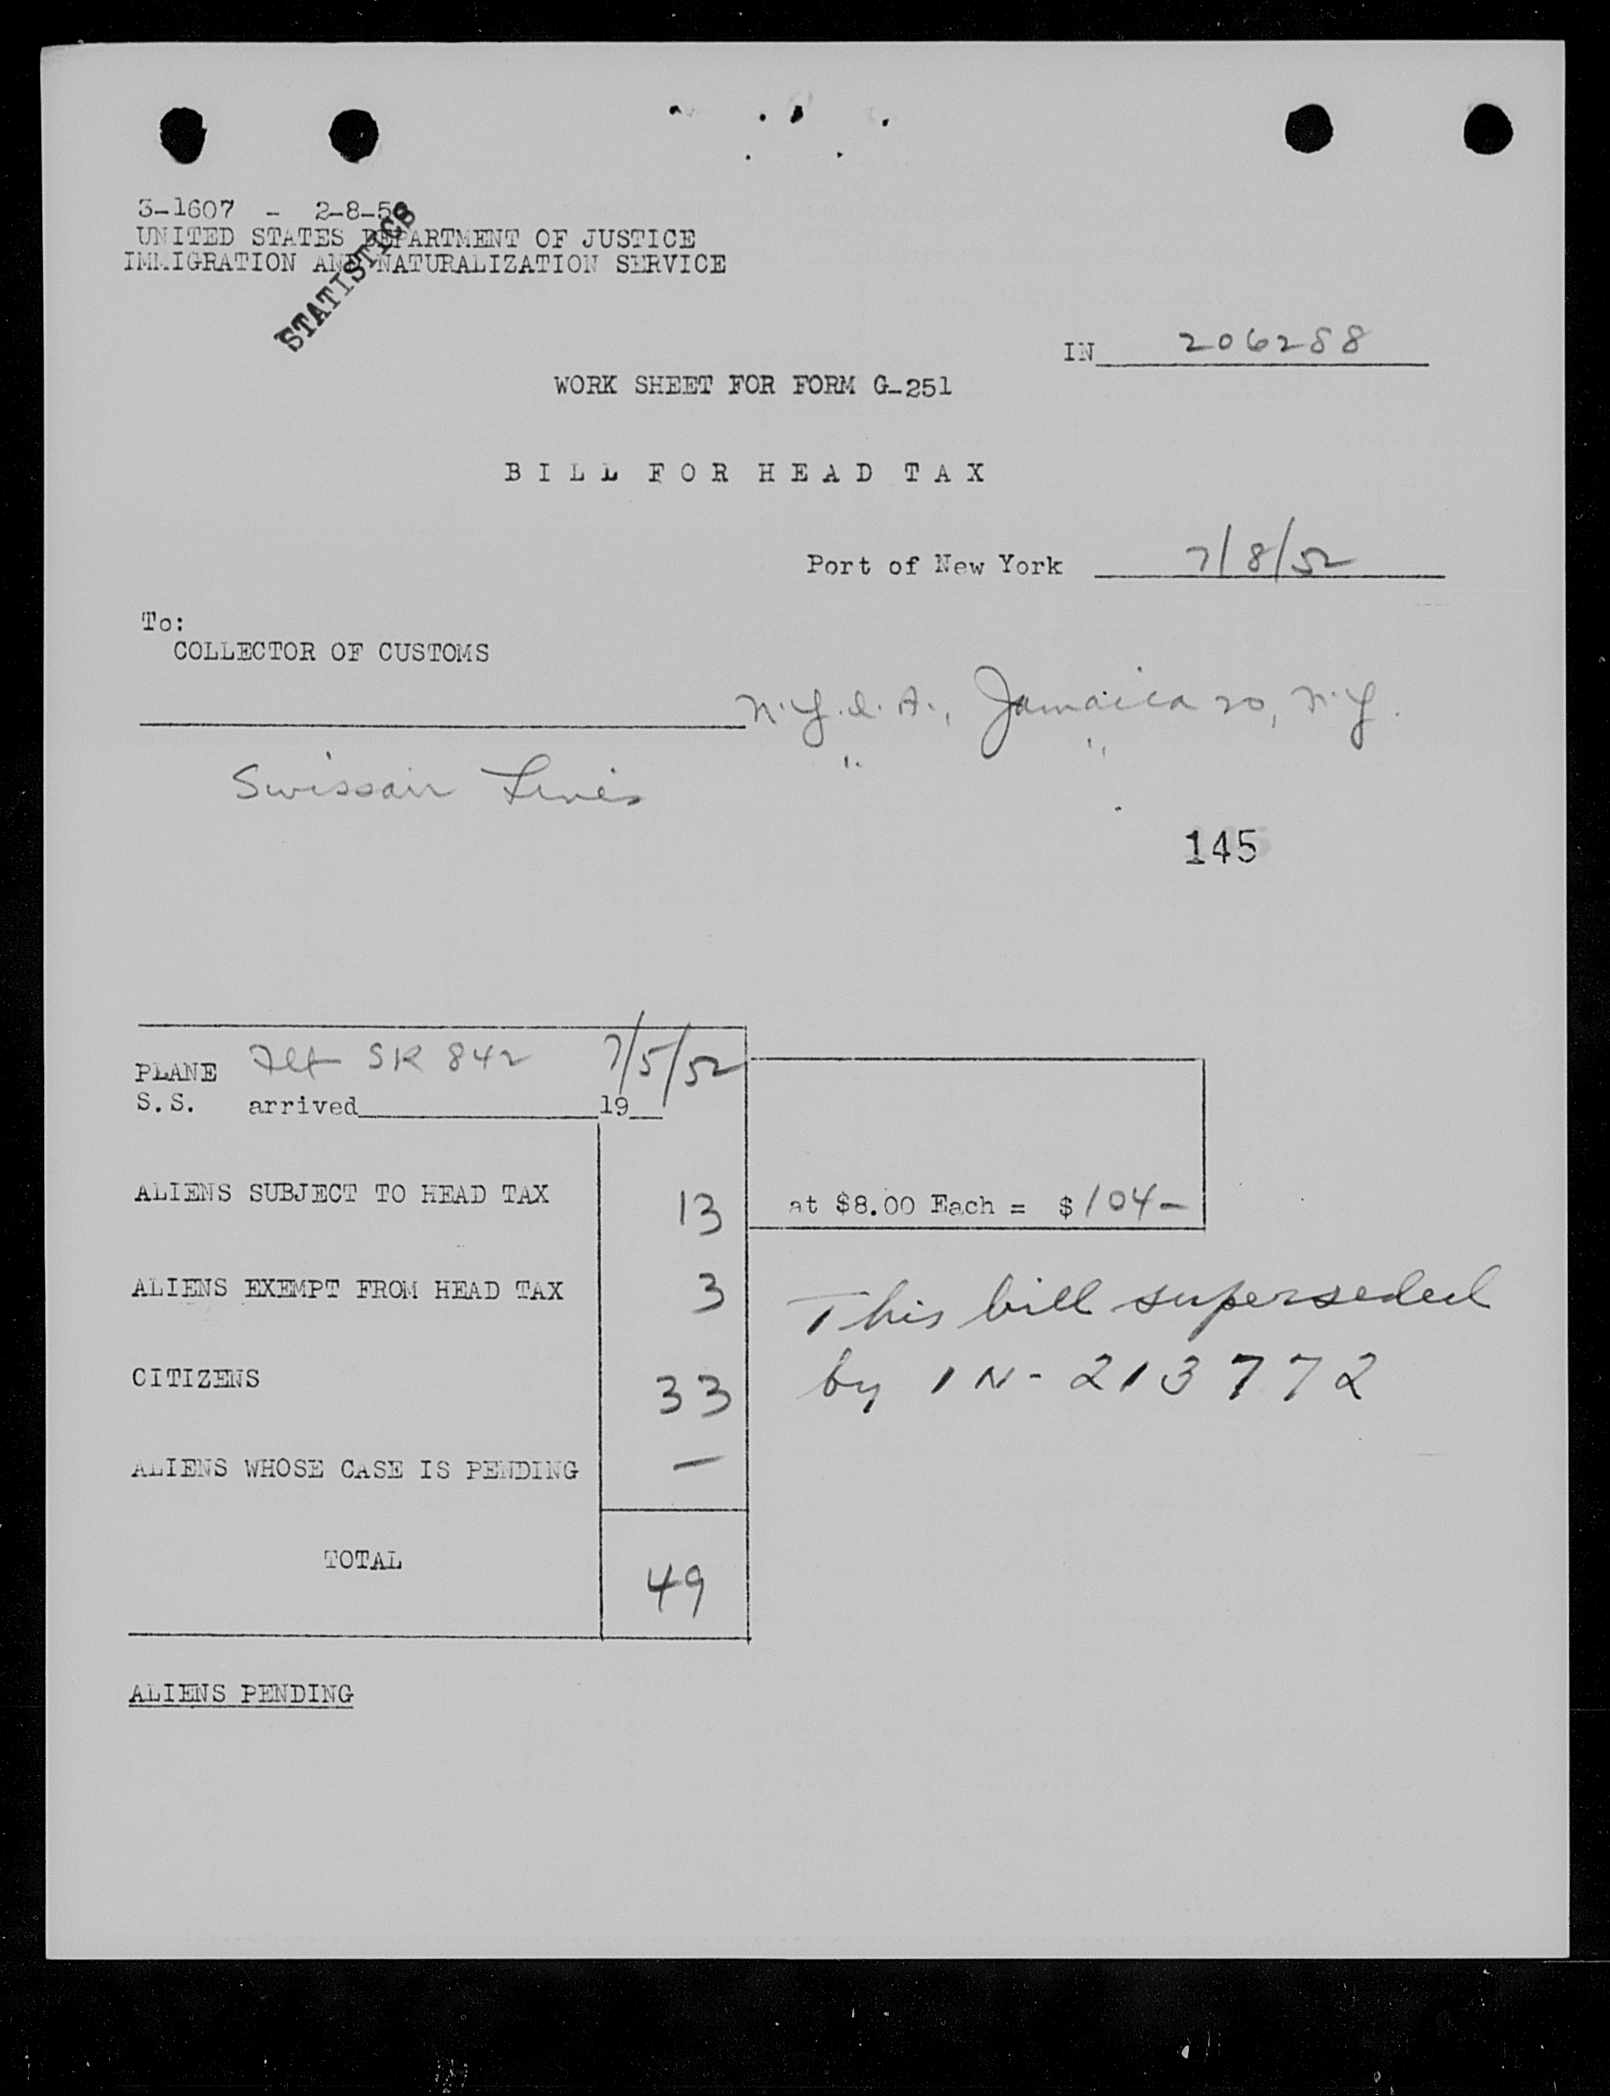 3-1607 - 2-8-5
UNITED STATES DEPARTMENT OF JUSTICE
IMMIGRATION AND NATURALIZATION SERVICE
STATISTICS
IN 206288
WORK SHEET FOR FORM G-251
BILL FOR HEAD TAX
Port of New York 7/8/52
To:
COLLECTOR OF CUSTOMS
N.Y.I.A., Jamaica 20, N.Y.
Swissair Lines " "
145
PLANE Flt SR 842 7/5/52
S.S. arrived 19
ALIENS SUBJECT TO HEAD TAX 13 at $8.00 Each = $104-
ALIENS EXEMPT FROM HEAD TAX 3 This bill superseded
CITIZENS 33 by IN-213772
ALIENS WHOSE CASE IS PENDING —
TOTAL 49
ALIENS PENDING